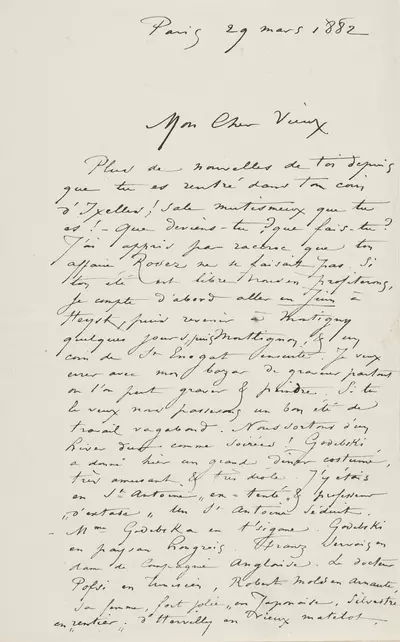 Paris 29 mars 1882
Mon Cher Vieux
Plus de nouvelles de toi depuis
que tu es rentré dans ton coin
d'Ixelles! sale mutismeux que tu
es! - Que deviens-tu? que fais-tu?
J'ai appris par raccroc que ton
affaire Rosez ne se faisait pas. Si
ton été est libre nous en profiterons,
Je compte d'abord aller en Juin à
Heyst, puis revenir à
quelques jours, puis & un
coin de St Enogat ensuite. Je veux
errer avec mon bazar de graveur partout
ou l'on peut graver & peindre. Si tu
le veux nous passerons un bon été de
travail vagabond. Nous sortons d'un
hiver dur comme soirées! Godebski
a donné hier un grand dîner costumé,
très amusant & très drole. J'y étais
en St Antoine, "en-tenté" & professeur
"d'extase" Un St Antoine séduit.
Mme Godebska en tsigane. Godebski
en paysan hongrois. Franz Servais en
dame de Compagnie Anglaise. Le docteur
en , Robert en
Sa femme, fort jolie, en Japonaise, Silvestre
en "rentier", d'Hervilly en Vieux matelot,